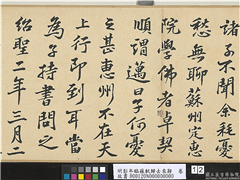 諸子不聞余耗憂
愁無聊蘇州定惠
院學佛者卓契
順謂邁曰子何憂
之甚惠州不在天
上行即到耳當
為子持書問之
紹聖二年三月二
明彭年臨蘇軾歸去來辭 卷
故書000120N000000000
12